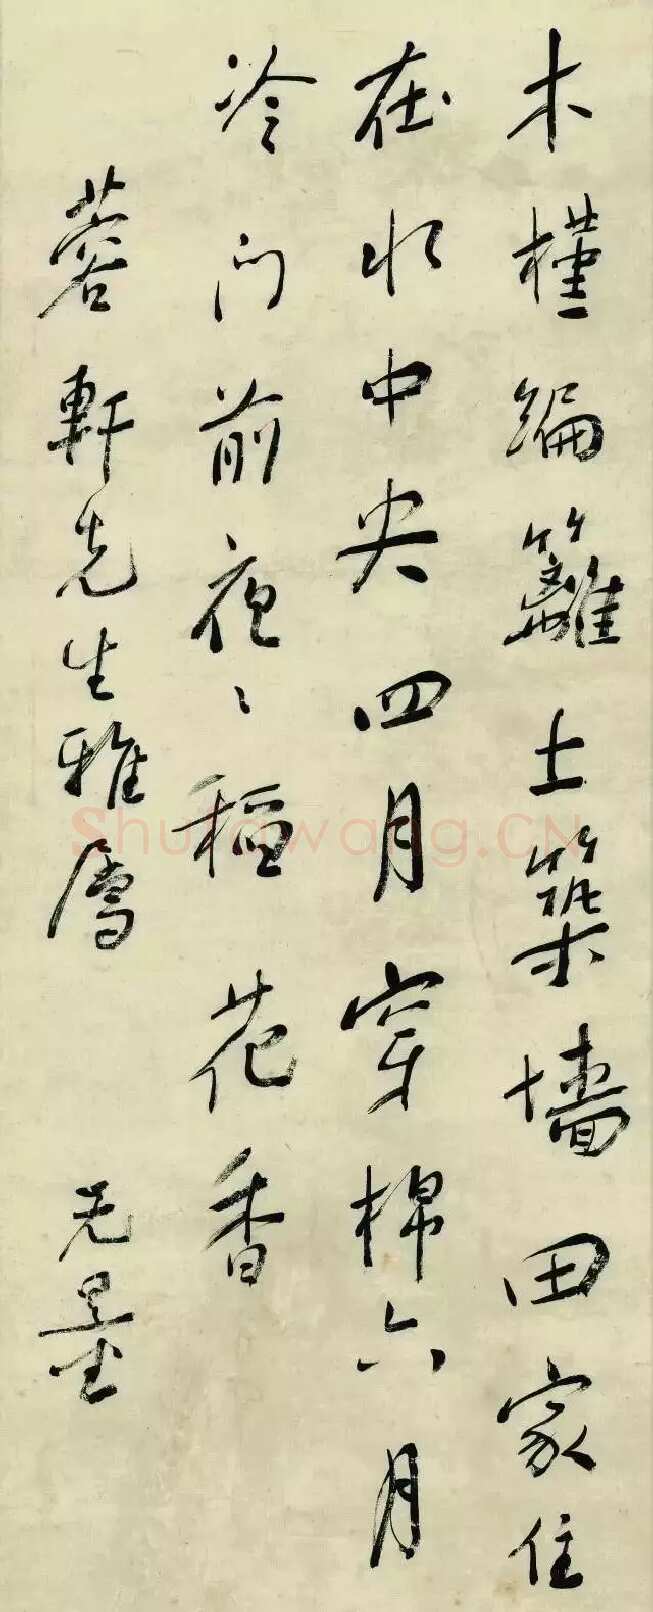 木槿编篱土築墙田家住
在水中央四月穿棉六月
冷门前夜夜稻花香
蓉軒先生雅属
无量
Shufawang.CN